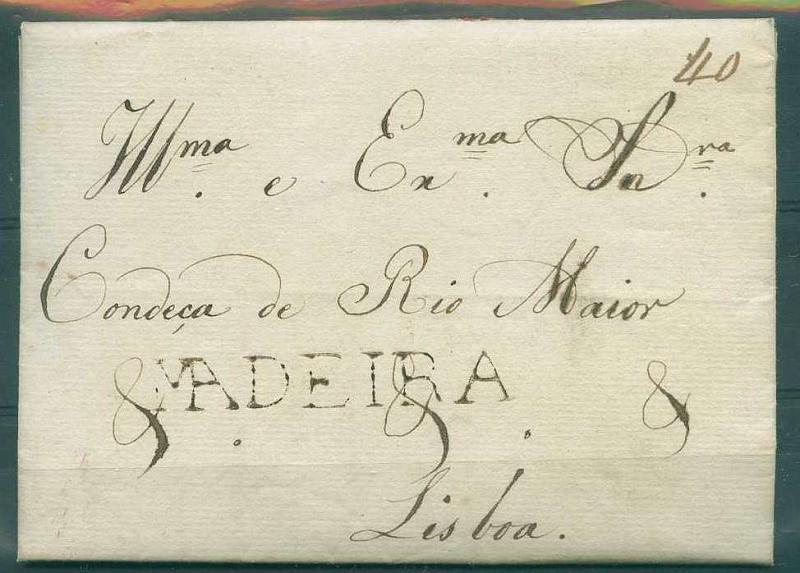 40
Illma. e Exma. Snra.
Condeça de Rio Maior
MADEIRA
&. &. &
Lisboa.